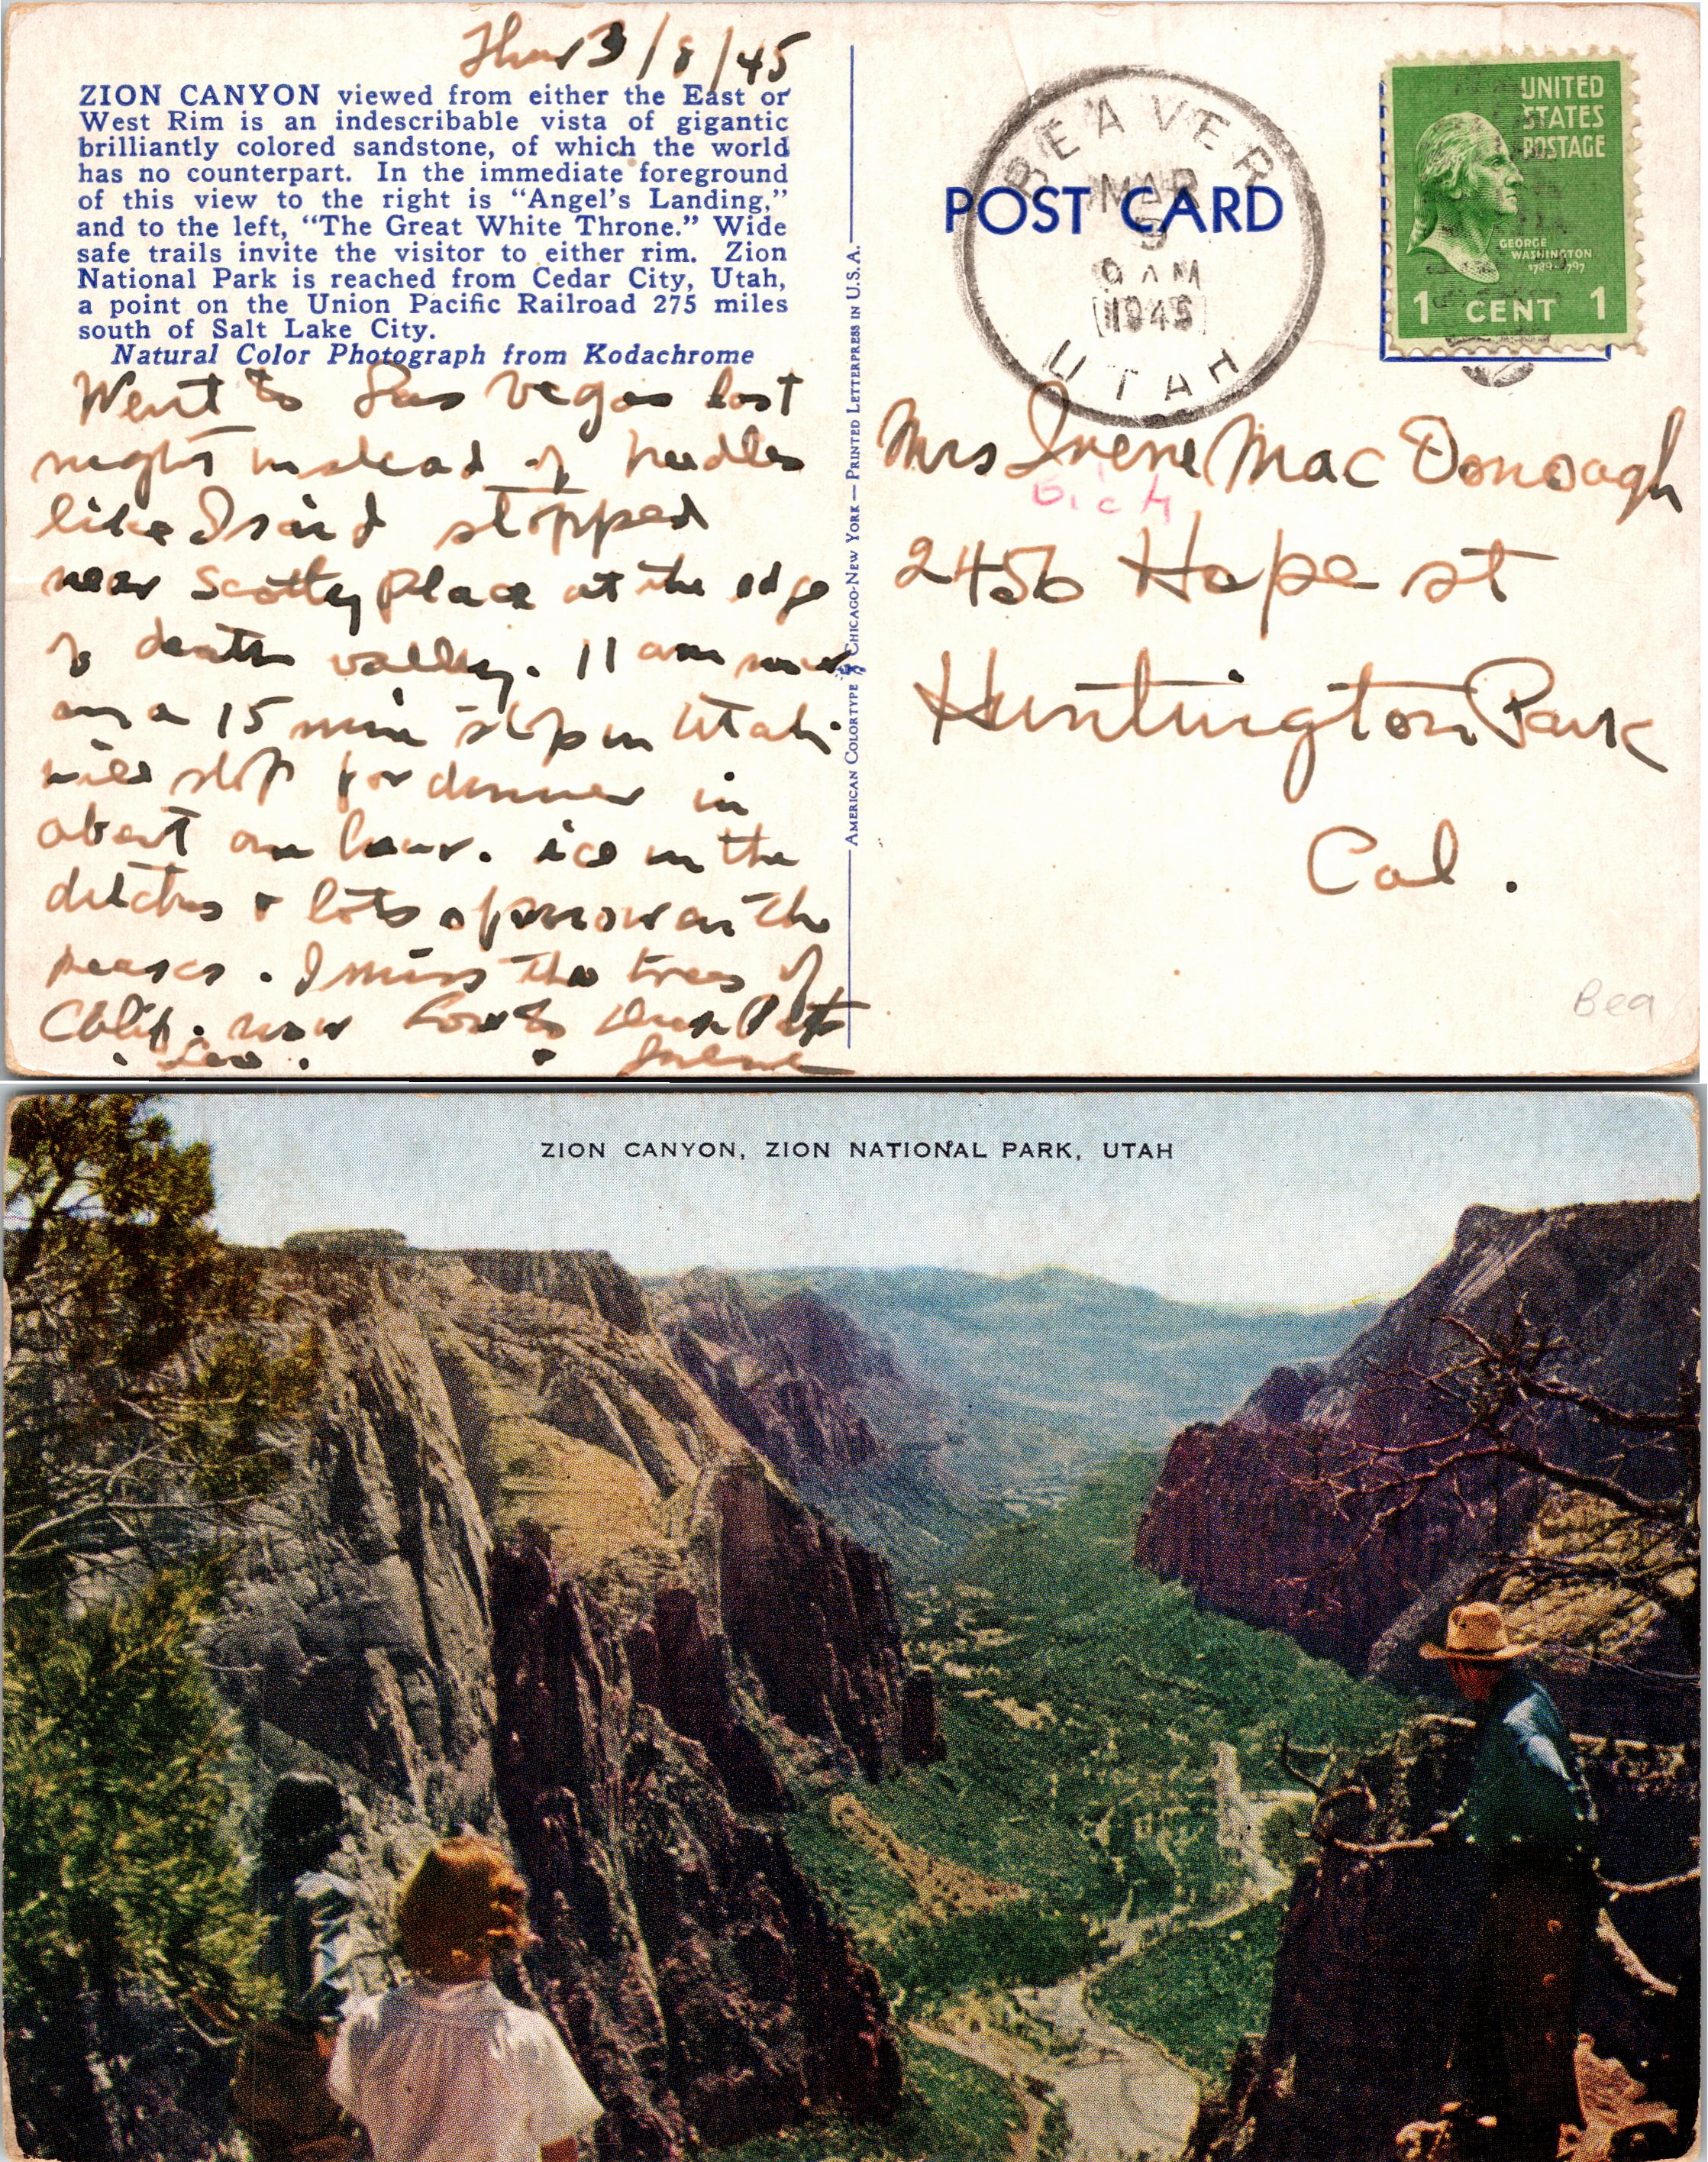 Thur 3/8/45
ZION CANYON viewed from either the East or
West Rim is an indescribable vista of gigantic
brilliantly colored sandstone, of which the world
has no counterpart. In the immediate foreground
of this view to the right is “Angel's Landing,”
and to the left, “The Great White Throne.” Wide
safe trails invite the visitor to either rim. Zion
National Park is reached from Cedar City, Utah,
a point on the Union Pacific Railroad 275 miles
south of Salt Lake City.
Natural Color Photograph from Kodachrome
Went to Las Vegas last
night instead of needles
like I said stopped
near Scotty place at the edge
of death valley. 11 am now
on a 15 min stop in Utah.
will stop for dinner in
about an hour. ice in the
ditches & lots of snow on the
peaks. I miss the trees of
Calif. now Love to
Leo. Irene
AMERICAN COLORTYPE CHICAGO-NEW YORK — PRINTED LETTERPRESS IN U.S.A.
POST CARD
BEAVER
MAR
9
9 AM
1945
UTAH
UNITED
STATES
POSTAGE
GEORGE
WASHINGTON
1789-1797
1 CENT 1
Mrs Irene MacDonough
2456 Hope st
Huntington Park
Cal.
Bea
ZION CANYON, ZION NATIONAL PARK, UTAH